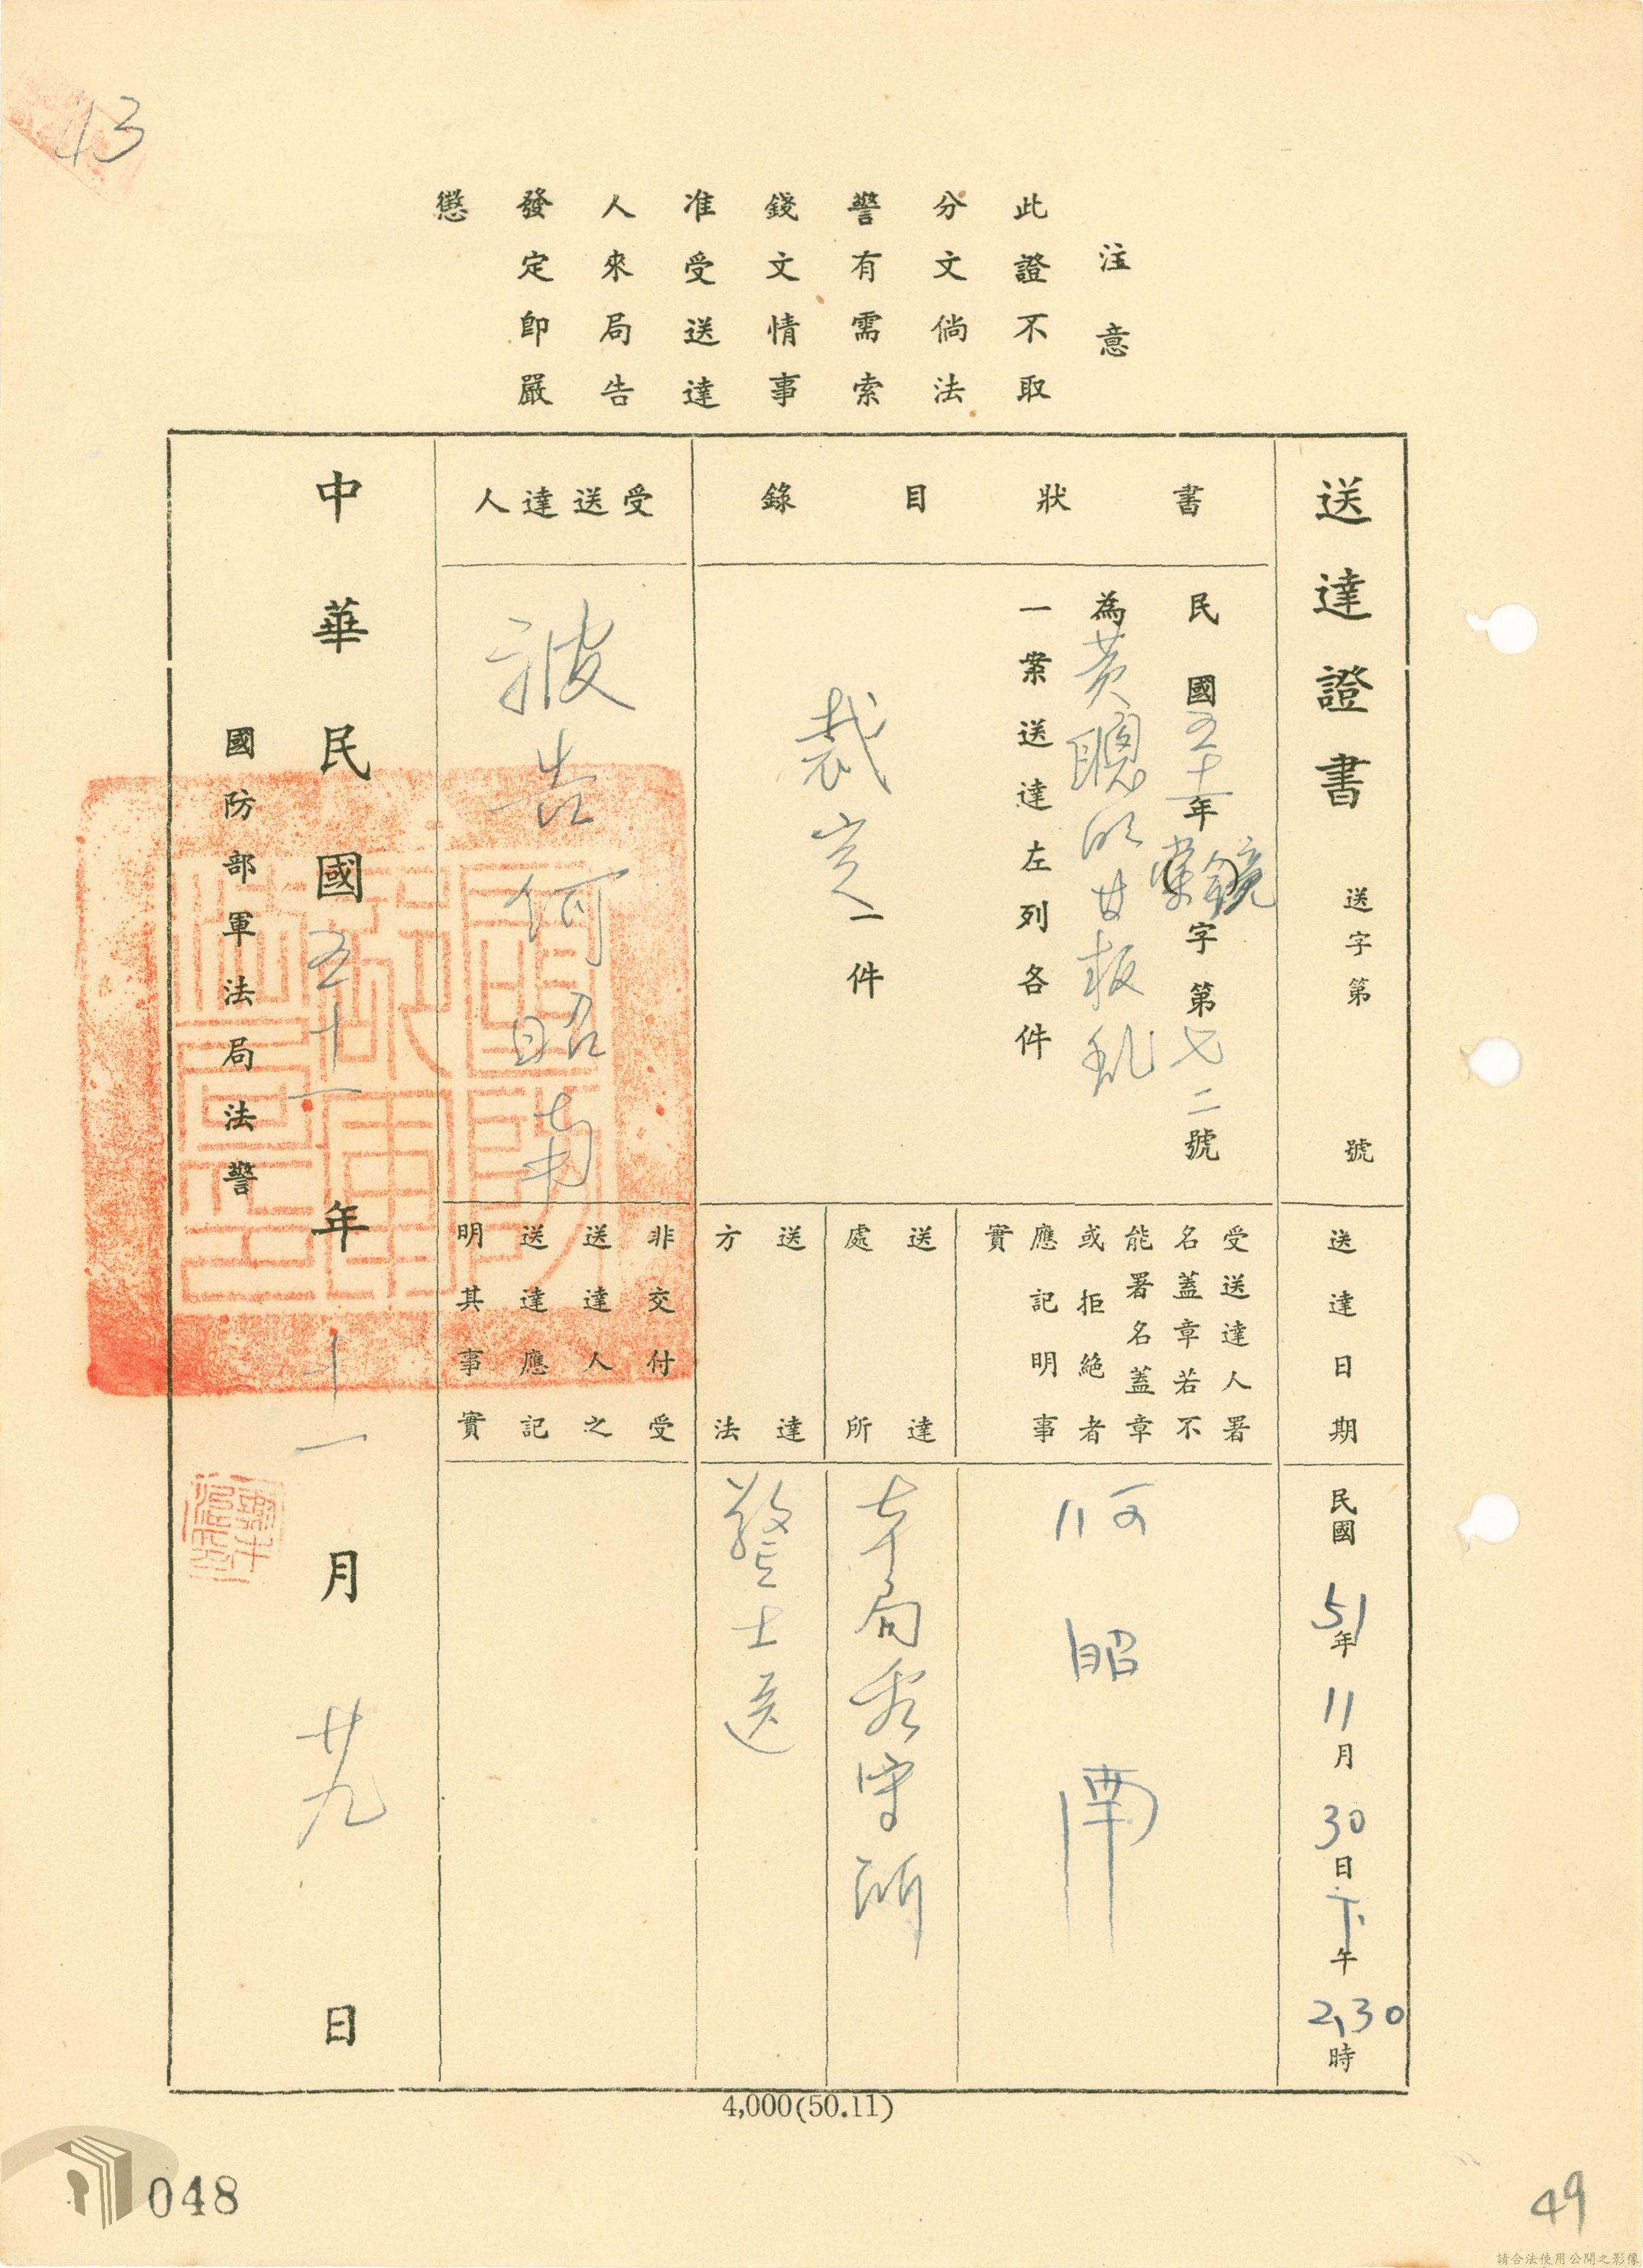 43
注意
此證不取
分文倘法
警有需索
錢文情事
准受送達
人來局告
發定即嚴
懲
送達證書 送字第 號
書狀目錄
民國五十一年鏡字第七二號
為黃聰明等叛亂
一案送達左列各件
裁定一件
受送達人
被告何昭南
送達日期
民國51年11月30日下午2,30時
受送達人署
名蓋章若不
能署名蓋章
或拒絕者
應記明事
實
何昭南
送達
處所
本局看守所
送達
方法
警士送
非交付受
送達人之
送達應記
明其事實
中華民國五十一年十一月廿九日
國防部軍法局法警
4,000(50.11)
048
49
請合法使用公開之影像